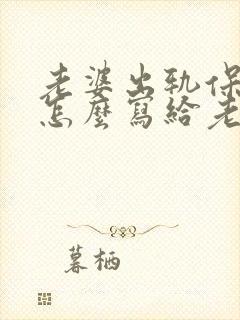 老婆出轨保
怎麼寫給老
暮栖